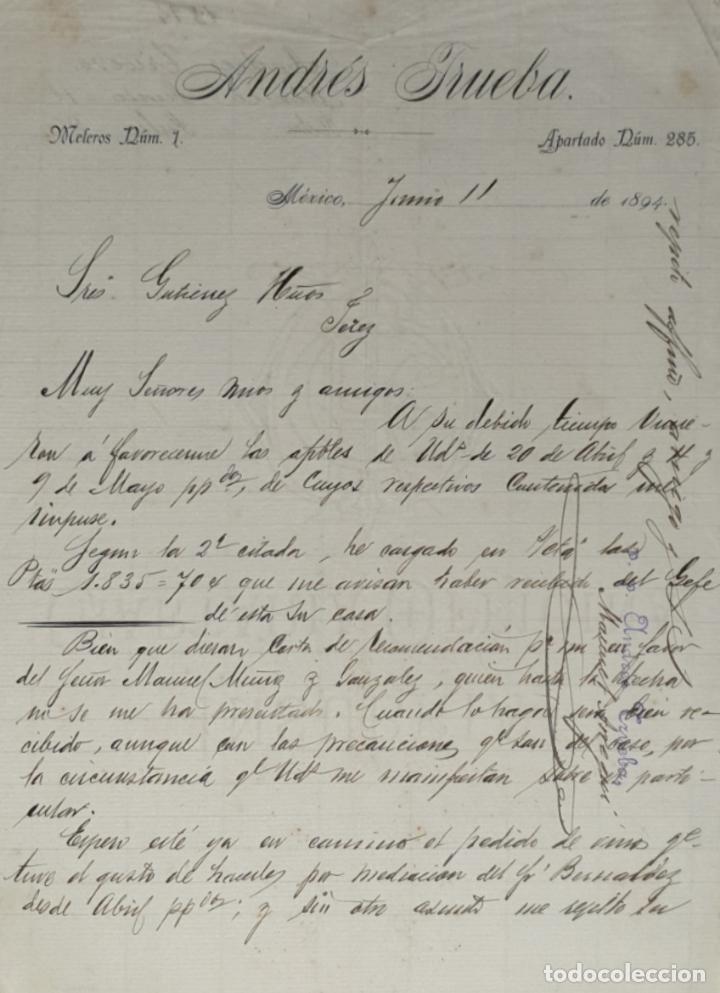 Andrés Trueba.
Meleros Núm. 1.
Apartado Núm. 285.
México, Junio 11 de 1894.
Sres. Gutierrez Hnos
Jerez
Muy Señores mios y amigos:
A su debido tiempo vinie-
ron á favorecerme las aptbles de Uds. de 20 de Abril y 4 y
9 de Mayo pp.do, de cuyos respectivos contenidos me
impuse.
Segun la 2ª citada, he cargado en las
Ptas 1.835=704 que me avisan haber recibido del Gefe
de esta su casa.
Bien que dieran carta de recomendación pª mi en favor
del Señor Manuel Muñoz y Gonzalez, quien hasta la fecha
no se me ha presentado. Cuando lo haga será bien re-
cibido, aunque con las precauciones qe. son del caso, por
la circunstancia qe. Uds. me manifiestan sobre el parti-
cular.
Espero esté ya en camino el pedido de vinos qe.
tuve el gusto de hacerles por mediacion del Sr. Bernaldez
desde Abril pp.do; y sin otro asunto me repito su
p. p. Andrés Trueba
Manuel